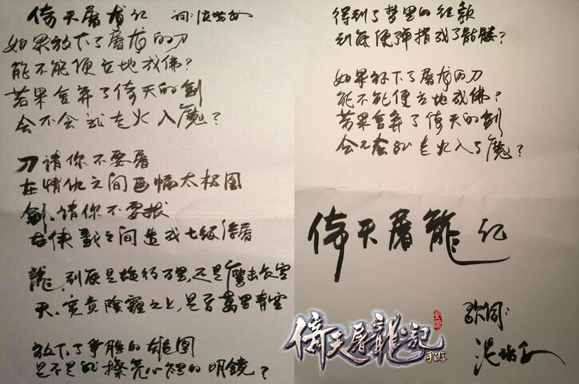 倚天屠龙记 词:
如果放下了屠龙的刀
能不能便立地成佛?
若果舍弃了倚天的剑
会不会就走火入魔?
刀请你不要屠
在情仇之间画幅太极图
剑,请你不要拔
在侠 之间造成七级浮屠
龙,到底是 行万里,还是鹰击长空
天,究竟阴霾之上,是否万里青空
放下了争胜的雄图
是不是能擦亮心裡的明镜?
得到了梦里的红颜
到底便弹指成了骷髅?
如果放下了屠龙的刀
能不能便立地成佛?
若果舍弃了倚天的剑
会不会就走火入了魔?
倚天屠龍记
倚天屠龍記
手游